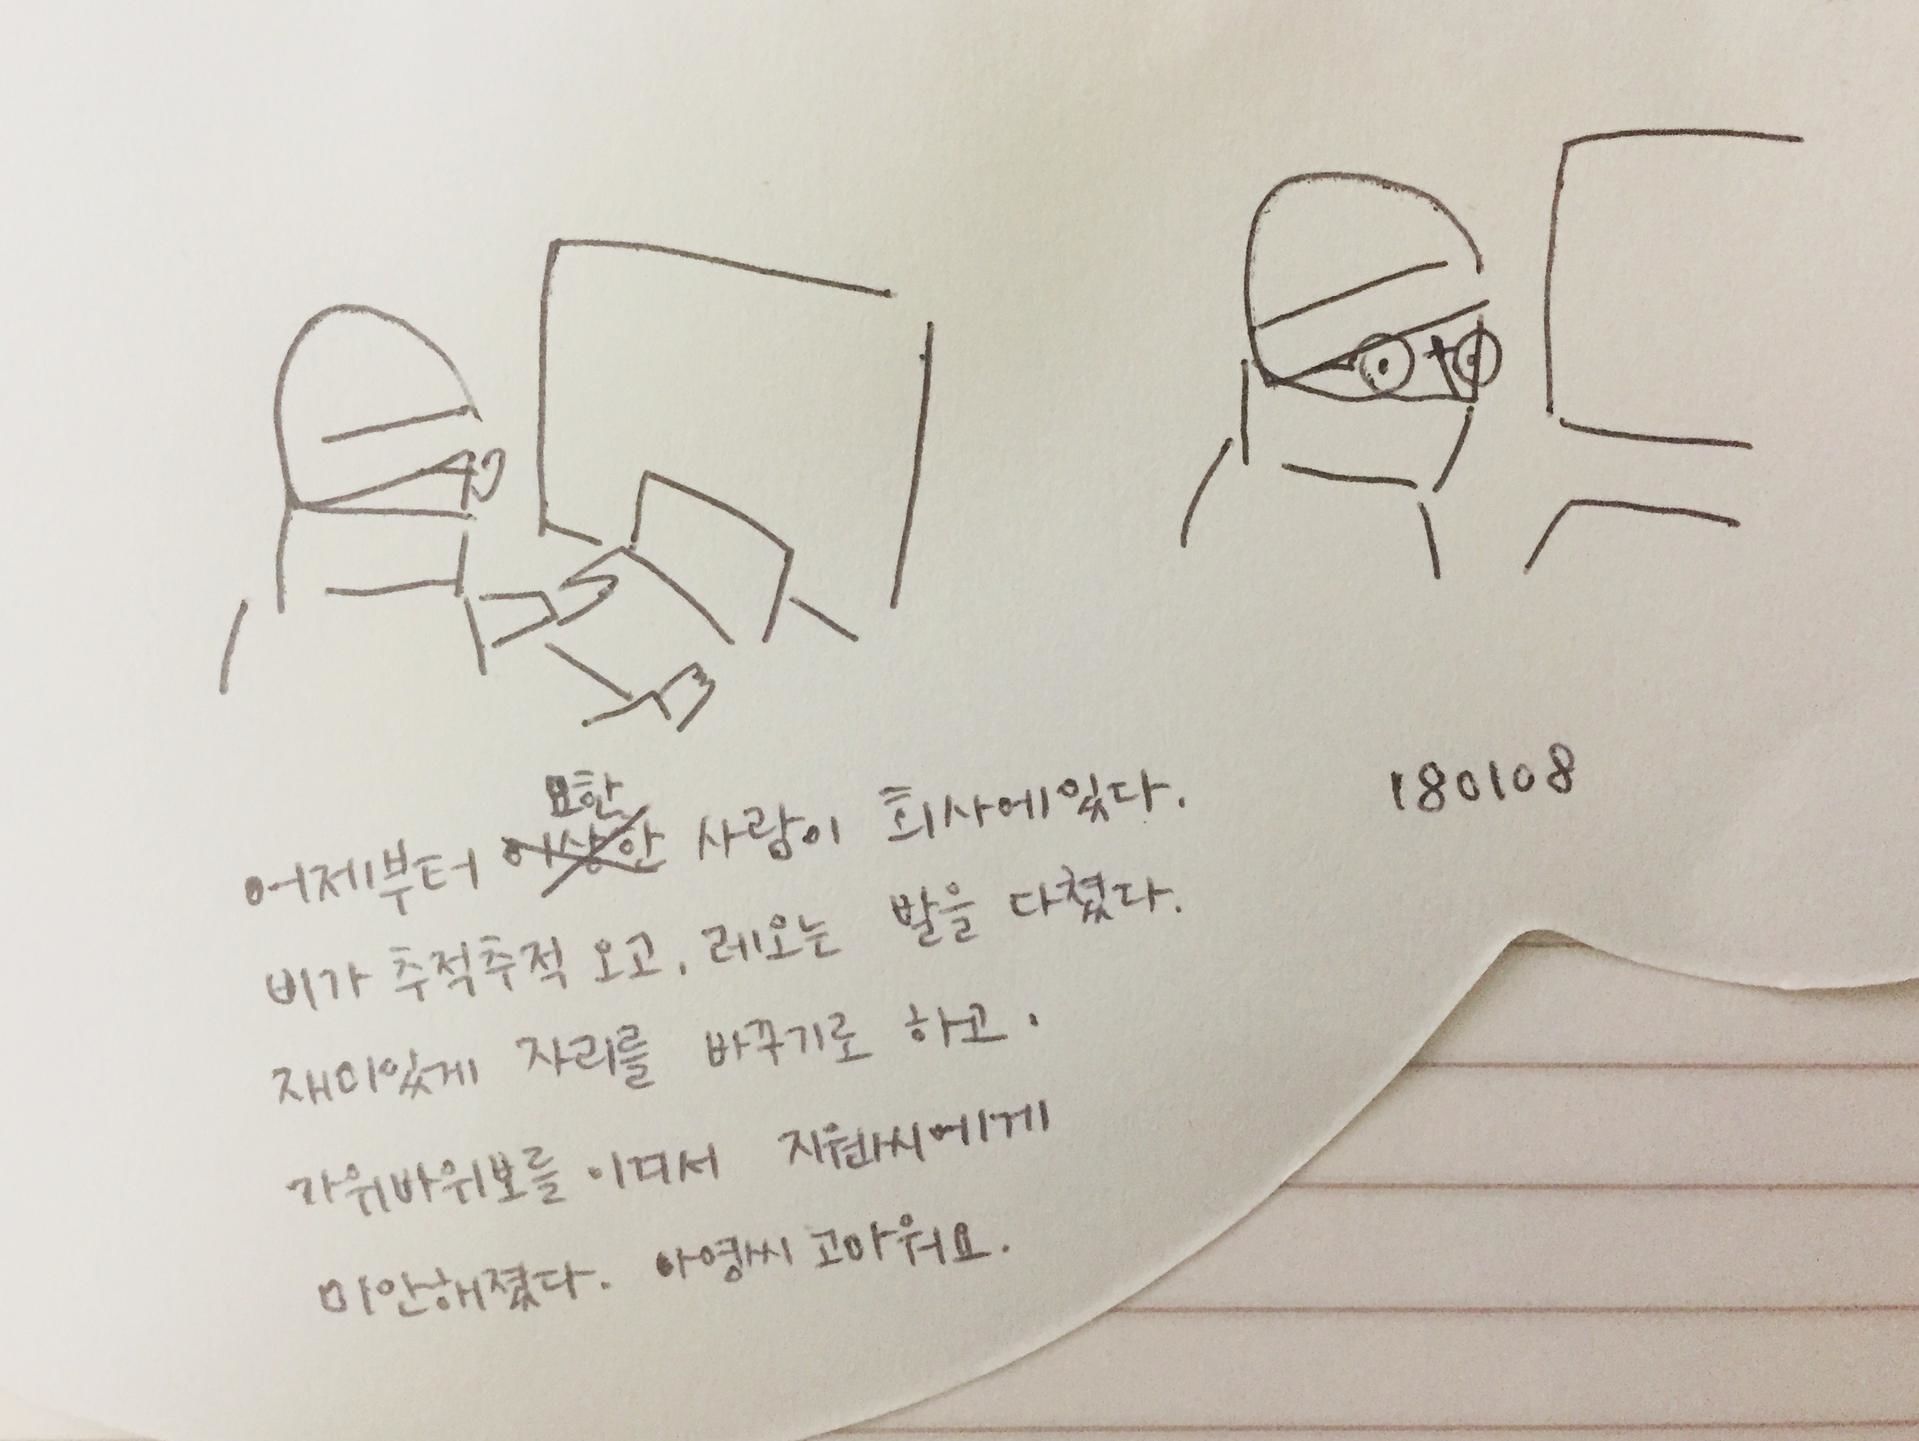 180108
묘한
어제부터 이상한 사람이 회사에있다.
비가 추적추적 오고, 레오는 발을 다쳤다.
재미있게 자리를 바꾸기로 하고.
가위바위보를 이겨서 지원씨에게
미안해졌다. 아영씨 고마워요.